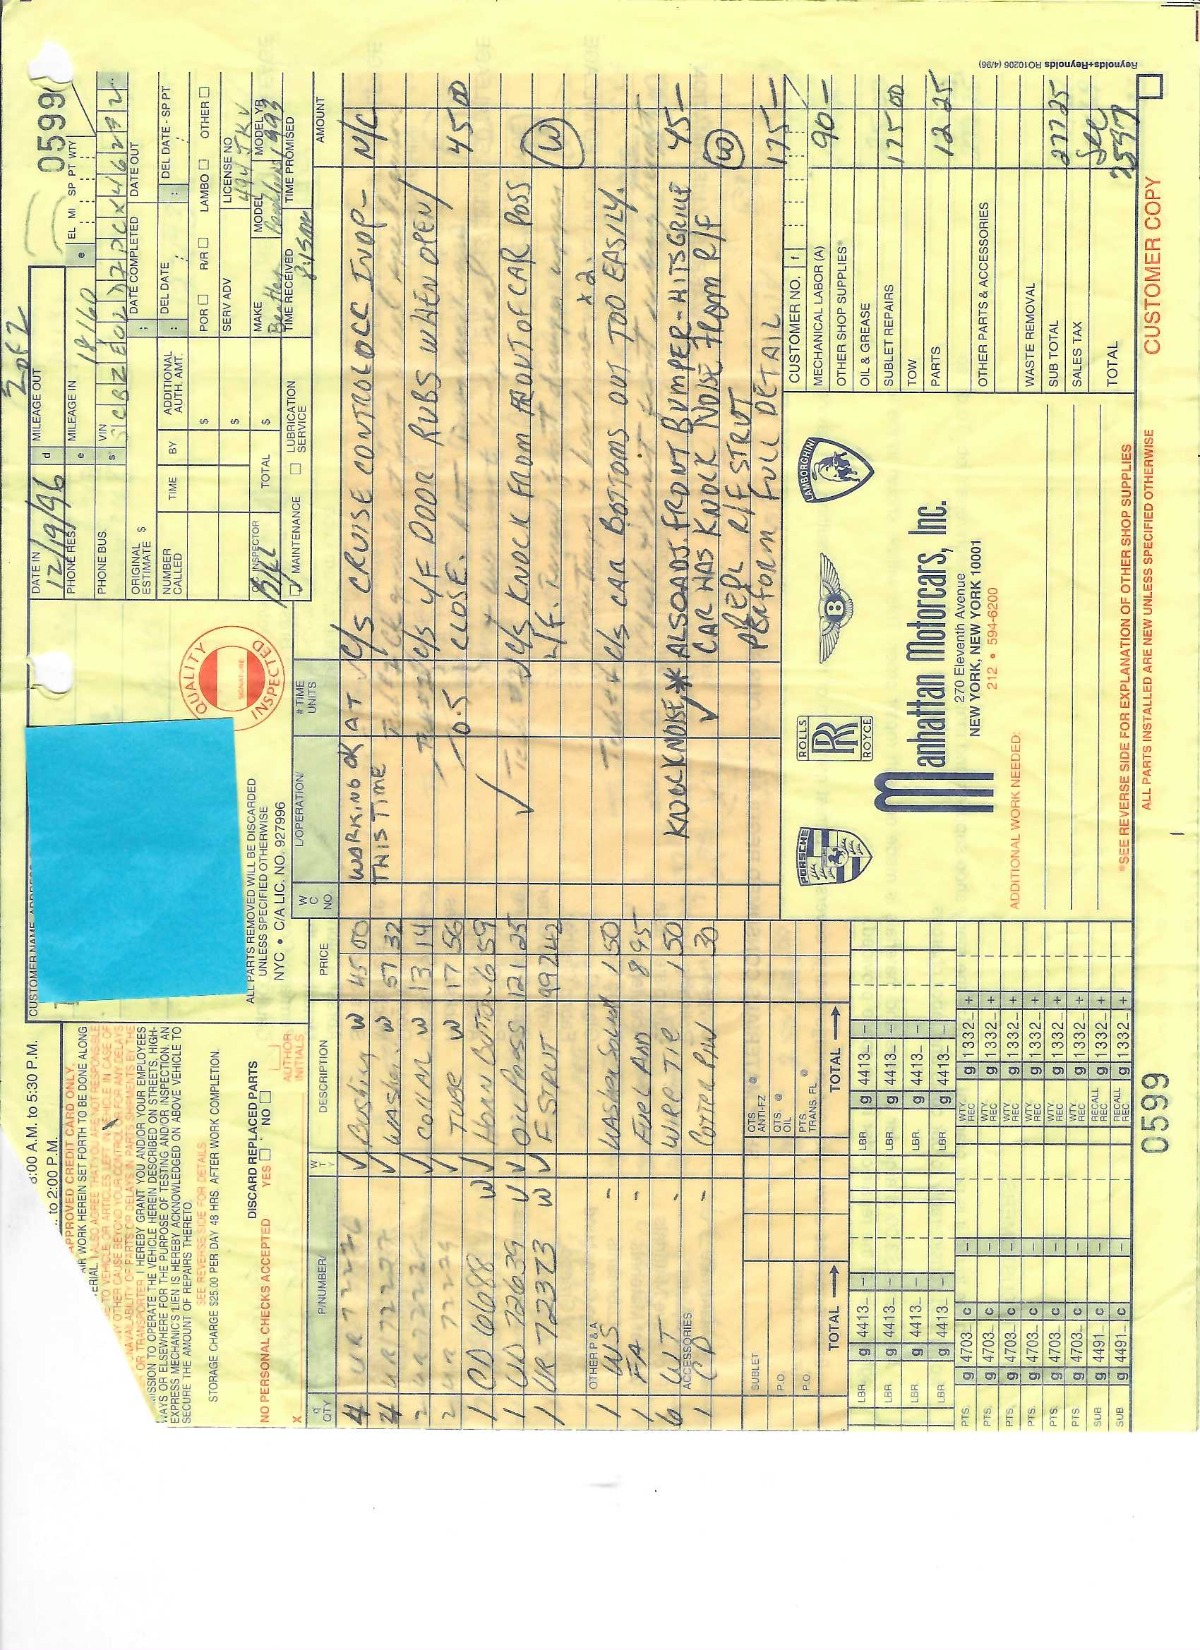 8:00 A.M. to 5:30 P.M.
to 2:00 P.M.
APPROVED CREDIT CARD ONLY.
WORK HEREIN SET FORTH TO BE DONE ALONG
MISSION TO OPERATE THE VEHICLE HEREIN DESCRIBED ON STREETS, HIGH-
WAYS OR ELSEWHERE FOR THE PURPOSE OF TESTING AND/OR INSPECTION. AN
EXPRESS MECHANIC'S LIEN IS HEREBY ACKNOWLEDGED ON ABOVE VEHICLE TO
SECURE THE AMOUNT OF REPAIRS THERETO.
SEE REVERSE SIDE FOR DETAILS
STORAGE CHARGE $25.00 PER DAY 48 HRS. AFTER WORK COMPLETION.
DISCARD REPLACED PARTS
NO PERSONAL CHECKS ACCEPTED YES NO
X AUTHOR INITIALS
CUSTOMER NAME, ADDRESS
ALL PARTS REMOVED WILL BE DISCARDED
UNLESS SPECIFIED OTHERWISE
NYC • C/A LIC. NO. 927996
QUALITY INSPECTED
2 of 2
DATE IN 12/19/96
MILEAGE OUT
0599
PHONE RES.
MILEAGE IN
EL MI SP PT WTY
PHONE BUS.
VIN
ORIGINAL ESTIMATE $
DATE COMPLETED DATE OUT
NUMBER CALLED TIME BY ADDITIONAL AUTH. AMT.
DEL DATE DEL DATE - SP PT
$
POR R/R LAMBO OTHER
$
SERV ADV LICENSE NO
INSPECTOR Bill TOTAL $
MAKE Bentley MODEL MODEL YR 1993
MAINTENANCE LUBRICATION SERVICE
TIME RECEIVED 8:15AM TIME PROMISED
QTY P/NUMBER/ DESCRIPTION PRICE
4 UR 72226 Bushing W 45 00
4 UR 72227 Washer W 57 32
2 Collar W 13 14
2 Tube W 17 56
1 CD 6688 W Horn Button 6 59
1 UD 72639 121 25
1 UR 72373 W F Strut 992 42
OTHER P & A
1 WS Washer Solv 1 50
1 FA Fuel Add 8 95
6 WT Wire Tie 1 50
ACCESSORIES
1 CP Cotter Pin 30
SUBLET QTS ANTI-FZ @
P.O. QTS OIL @
P.O. PTS TRANS. FL @
TOTAL → TOTAL →
LBR g 4413 – LBR g 4413 –
LBR g 4413 – LBR g 4413 –
LBR g 4413 – LBR g 4413 –
LBR g 4413 – LBR g 4413 –
PTS. g 4703 c – WTY REC g 1332 +
PTS. g 4703 c – WTY REC g 1332 +
PTS. g 4703 c – WTY REC g 1332 +
PTS. g 4703 c – WTY REC g 1332 +
PTS. g 4703 c – WTY REC g 1332 +
PTS. g 4703 c – WTY REC g 1332 +
SUB g 4491 c – RECALL REC g 1332 +
SUB g 4491 c – RECALL REC g 1332 +
0599
W C NO. L/OPERATION/ # TIME UNITS AMOUNT
WORKING OK AT THIS TIME
C/S CRUISE CONTROL OCC INOP - N/C
0.5 C/S L/F DOOR RUBS WHEN OPEN/CLOSE. 45 00
C/S KNOCK FROM FRONT OF CAR POSS L/F. W
C/S CAR BOTTOMS OUT TOO EASILY. X2
KNOCK NOISE * ALSO ADJ. FRONT BUMPER - HITS GRILLE 45 –
CAR HAS KNOCK NOISE FROM R/F W
REPL R/F STRUT
PERFORM FULL DETAIL 175 –
PORSCHE
ROLLS RR ROYCE
B
LAMBORGHINI
Manhattan Motorcars, Inc.
270 Eleventh Avenue
NEW YORK, NEW YORK 10001
212 • 594-6200
ADDITIONAL WORK NEEDED:
CUSTOMER NO. f
MECHANICAL LABOR (A) 90 –
OTHER SHOP SUPPLIES*
OIL & GREASE
SUBLET REPAIRS 175 00
TOW
PARTS 12 25
OTHER PARTS & ACCESSORIES
WASTE REMOVAL
SUB TOTAL 277 25
SALES TAX See
TOTAL 2597
*SEE REVERSE SIDE FOR EXPLANATION OF OTHER SHOP SUPPLIES
ALL PARTS INSTALLED ARE NEW UNLESS SPECIFIED OTHERWISE
CUSTOMER COPY
Reynolds+Reynolds RO10206 (4/96)